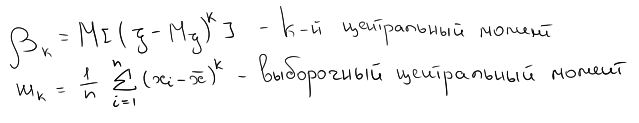 β_k = M[(ξ - M_ξ)^k] - k-й центральный момент
m_k = 1/n ∑_{i=1}^{n} (x_i - x̄)^k - Выборочный центральный момент